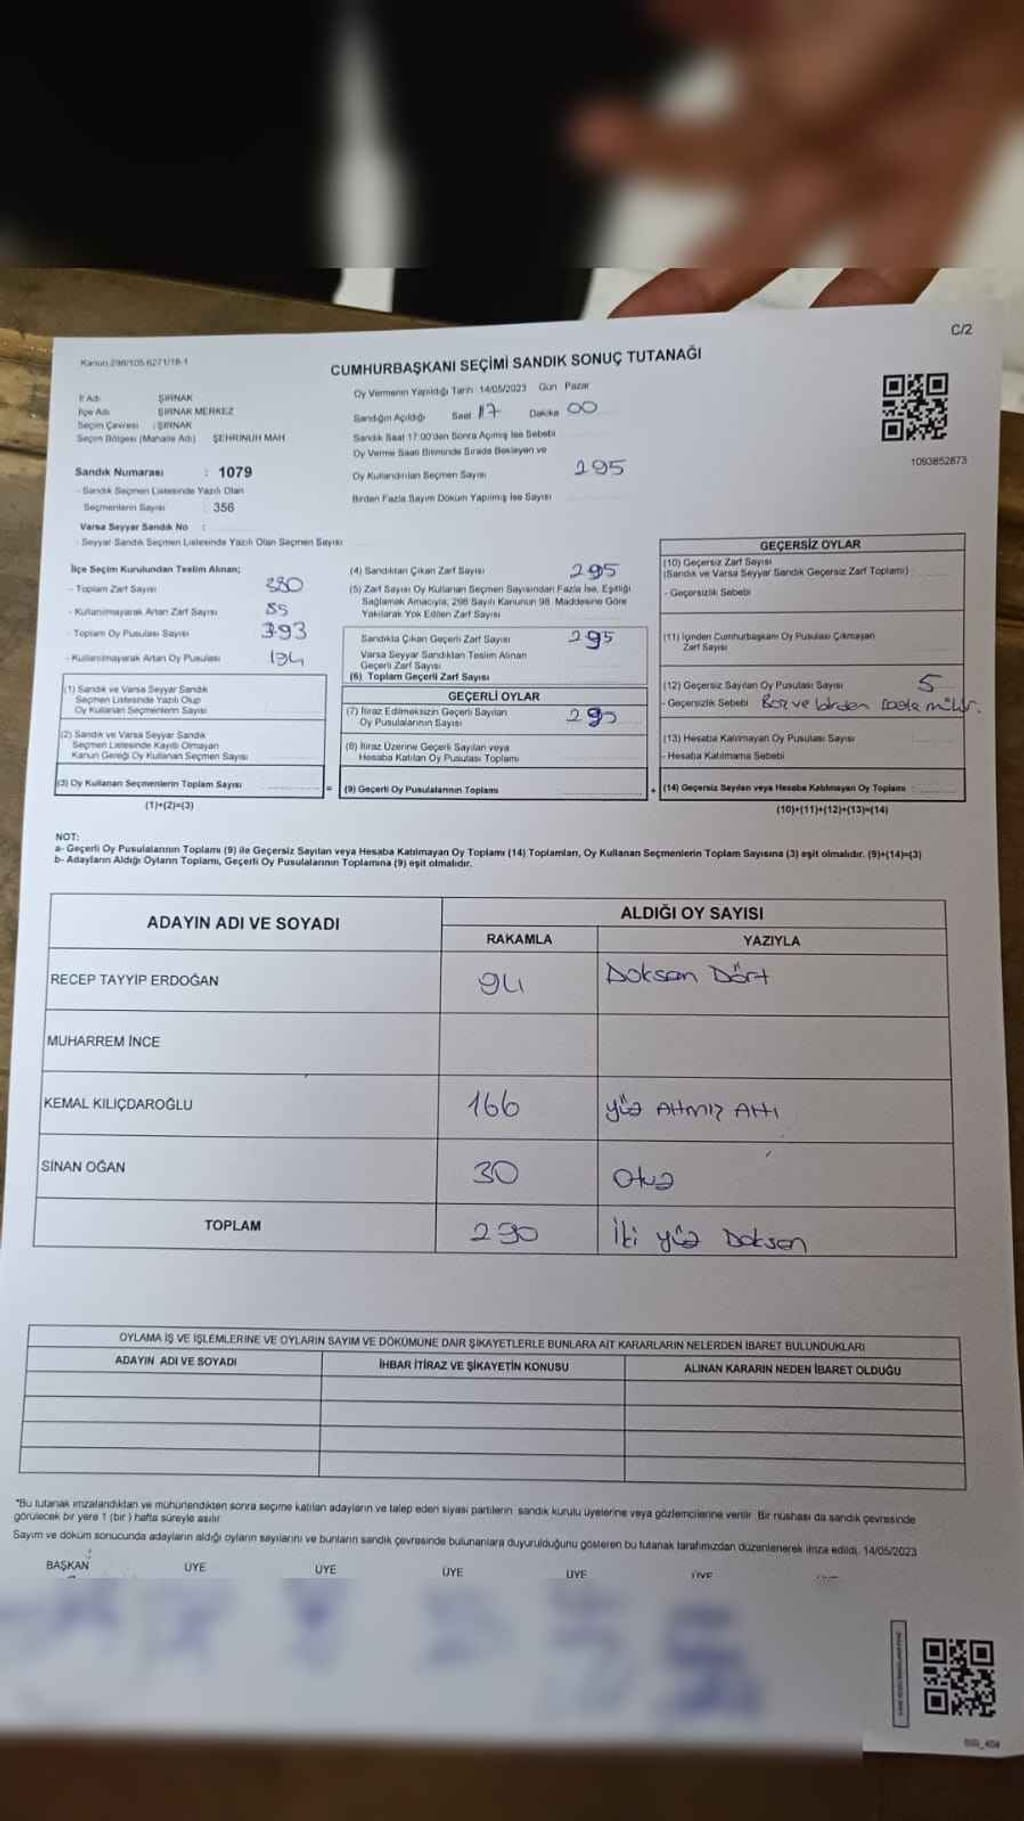 C/2
Kanun 298/105 6271/18-1
CUMHURBAŞKANI SEÇİMİ SANDIK SONUÇ TUTANAĞI
İl Adı : ŞIRNAK
İlçe Adı : ŞIRNAK MERKEZ
Seçim Çevresi : ŞIRNAK
Seçim Bölgesi (Mahalle Adı) : ŞEHRİNUH MAH
Sandık Numarası : 1079
- Sandık Seçmen Listesinde Yazılı Olan
Seçmenlerin Sayısı : 356
Varsa Seyyar Sandık No :
- Seyyar Sandık Seçmen Listesinde Yazılı Olan Seçmen Sayısı
Oy Vermenin Yapıldığı Tarih 14/05/2023 Gün Pazar
Sandığın Açıldığı Saat 17 Dakika 00
Sandık Saat 17:00'den Sonra Açılmış İse Sebebi
Oy Verme Saati Bitiminde Sırada Bekleyen ve
Oy Kullandırılan Seçmen Sayısı 295
Birden Fazla Sayım Döküm Yapılmış İse Sayısı
1093852873
İlçe Seçim Kurulundan Teslim Alınan;
- Toplam Zarf Sayısı 380
- Kullanılmayarak Artan Zarf Sayısı 85
- Toplam Oy Pusulası Sayısı 393
- Kullanılmayarak Artan Oy Pusulası
(1) Sandık ve Varsa Seyyar Sandık
Seçmen Listesinde Yazılı Olup
Oy Kullanan Seçmenlerin Sayısı
(2) Sandık ve Varsa Seyyar Sandık
Seçmen Listesinde Kayıtlı Olmayan
Kanun Gereği Oy Kullanan Seçmen Sayısı
(3) Oy Kullanan Seçmenlerin Toplam Sayısı
(1)+(2)=(3)
(4) Sandıktan Çıkan Zarf Sayısı 295
(5) Zarf Sayısı Oy Kullanan Seçmen Sayısından Fazla İse, Eşitliği
Sağlamak Amacıyla, 298 Sayılı Kanunun 98. Maddesine Göre
Yakılarak Yok Edilen Zarf Sayısı
Sandıkta Çıkan Geçerli Zarf Sayısı 295
Varsa Seyyar Sandıktan Teslim Alınan
Geçerli Zarf Sayısı
(6) Toplam Geçerli Zarf Sayısı
GEÇERLİ OYLAR
(7) İtiraz Edilmeksizin Geçerli Sayılan
Oy Pusulalarının Sayısı 295
(8) İtiraz Üzerine Geçerli Sayılan veya
Hesaba Katılan Oy Pusulası Toplamı
= (9) Geçerli Oy Pusulalarının Toplamı
GEÇERSİZ OYLAR
(10) Geçersiz Zarf Sayısı
(Sandık ve Varsa Seyyar Sandık Geçersiz Zarf Toplamı)
- Geçersizlik Sebebi
(11) İçinden Cumhurbaşkanı Oy Pusulası Çıkmayan
Zarf Sayısı
(12) Geçersiz Sayılan Oy Pusulası Sayısı 5
- Geçersizlik Sebebi Boş ve birden
(13) Hesaba Katılmayan Oy Pusulası Sayısı
- Hesaba Katılmama Sebebi
+ (14) Geçersiz Sayılan veya Hesaba Katılmayan Oy Toplamı :
(10)+(11)+(12)+(13)=(14)
NOT:
a- Geçerli Oy Pusulalarının Toplamı (9) ile Geçersiz Sayılan veya Hesaba Katılmayan Oy Toplamı (14) Toplamları, Oy Kullanan Seçmenlerin Toplam Sayısına (3) eşit olmalıdır. (9)+(14)=(3)
b- Adayların Aldığı Oyların Toplamı, Geçerli Oy Pusulalarının Toplamına (9) eşit olmalıdır.
ADAYIN ADI VE SOYADI ALDIĞI OY SAYISI
RAKAMLA YAZIYLA
RECEP TAYYİP ERDOĞAN 94 Doksan Dört
MUHARREM İNCE
KEMAL KILIÇDAROĞLU 166 yüz Atmış Altı
SİNAN OĞAN 30 Otuz
TOPLAM 290 İki yüz Doksan
OYLAMA İŞ VE İŞLEMLERİNE VE OYLARIN SAYIM VE DÖKÜMÜNE DAİR ŞİKAYETLERLE BUNLARA AİT KARARLARIN NELERDEN İBARET BULUNDUKLARI
ADAYIN ADI VE SOYADI İHBAR İTİRAZ VE ŞİKAYETİN KONUSU ALINAN KARARIN NEDEN İBARET OLDUĞU
*Bu tutanak imzalandıktan ve mühürlendikten sonra seçime katılan adayların ve talep eden siyasi partilerin sandık kurulu üyelerine veya gözlemcilerine verilir. Bir nüshası da sandık çevresinde
görülecek bir yere 1 (bir) hafta süreyle asılır.
Sayım ve döküm sonucunda adayların aldığı oyların sayılarını ve bunların sandık çevresinde bulunanlara duyurulduğunu gösteren bu tutanak tarafımızdan düzenlenerek imza edildi. 14/05/2023
BAŞKAN ÜYE ÜYE ÜYE ÜYE ÜYE